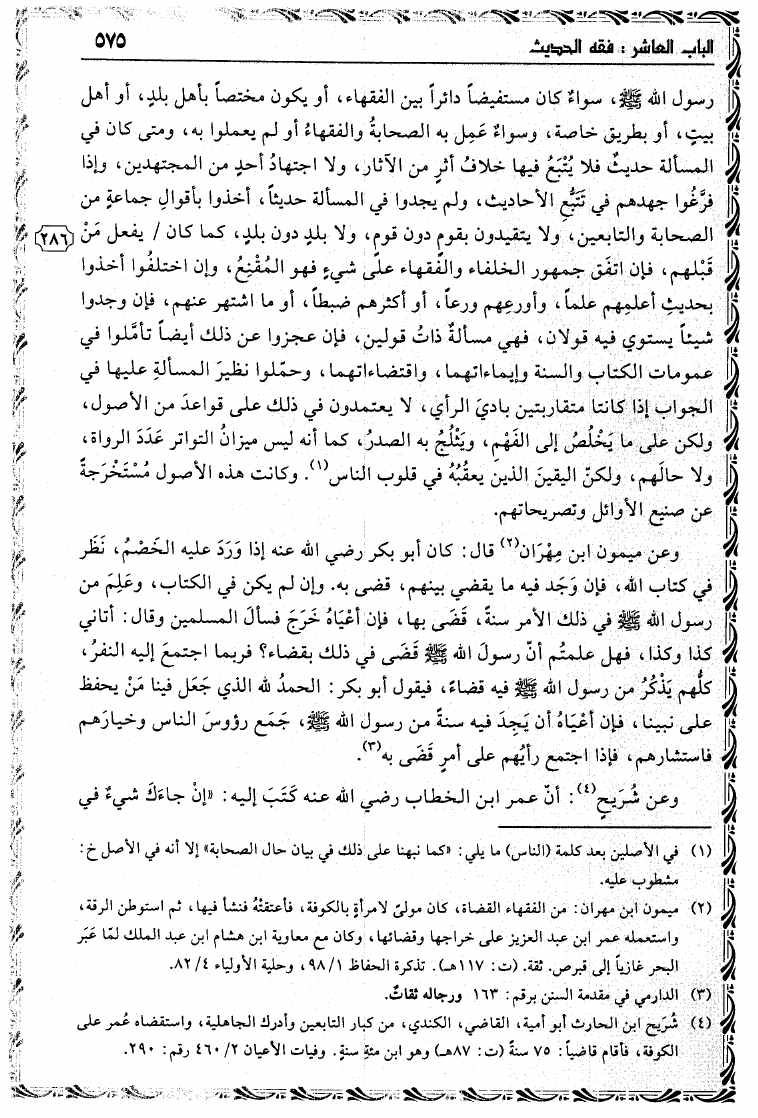 الباب العاشر : فقه الحديث ٥٧٥
رسول الله ﷺ، سواءٌ كان مستفيضاً دائراً بين الفقهاء، أو يكون مختصاً بأهل بلدٍ، أو أهل
بيتٍ، أو بطريق خاصة، وسواءٌ عَمِل به الصحابةُ والفقهاءُ أو لم يعملوا به، ومتى كان في
المسألة حديثٌ فلا يُتْبَعُ فيها خلافُ أثرٍ من الآثار، ولا اجتهادُ أحدٍ من المجتهدين، وإذا
فرَّغُوا جهدهم في تَتَبُّعِ الأحاديث، ولم يجدوا في المسألة حديثاً، أخذوا بأقوالِ جماعةٍ من
الصحابة والتابعين، ولا يتقيدون بقومٍ دون قومٍ، ولا بلدٍ دون بلدٍ، كما كان / يفعل مَنْ ٢٨٦
قَبْلهم، فإن اتفَق جمهور الخلفاء والفقهاء على شيءٍ فهو المُقْنِعُ، وإن اختلفُوا أخذوا
بحديثِ أعلمِهم علماً، وأورعِهم ورعاً، أو أكثرِهم ضبطاً، أو ما اشتهر عنهم، فإن وجدوا
شيئاً يستوي فيه قولان، فهي مسألةٌ ذاتُ قولين، فإن عجزوا عن ذلك أيضاً تأمَّلوا في
عمومات الكتاب والسنة وإيماءاتهما، واقتضاءاتهما، وحمّلوا نظيرَ المسألةِ عليها في
الجواب إذا كانتا متقاربتين باديَ الرأي، لا يعتمدون في ذلك على قواعدَ من الأصول،
ولكن على ما يَخْلُصُ إلى الفَهْمِ، ويَثْلُجُ به الصدرُ، كما أنه ليس ميزانُ التواتر عَدَدَ الرواة،
ولا حالَهم، ولكنّ اليقينَ الذين يعقُبُهُ في قلوب الناس(١). وكانت هذه الأصول مُسْتَخْرَجةً
عن صنيع الأوائل وتصريحاتهم.
وعن ميمون ابن مِهْرَان(٢) قال: كان أبو بكر رضي الله عنه إذا وَرَدَ عليه الخَصْمُ، نَظَر
في كتاب الله، فإن وَجَد فيه ما يقضي بينهم، قضى به. وإن لم يكن في الكتاب، وعَلِمَ من
رسول الله ﷺ في ذلك الأمر سنةً، قَضَى بها، فإن أعْيَاهُ خَرَجَ فسألَ المسلمين وقال: أتاني
كذا وكذا، فهل علمتُم أنّ رسولَ الله ﷺ قَضَى في ذلك بقضاء؟ فربما اجتمعَ إليه النفرُ،
كلُّهم يَذْكُرُ من رسول الله ﷺ فيه قضاءً، فيقول أبو بكر: الحمدُ لله الذي جَعَل فينا مَنْ يحفظ
على نبينا، فإن أعْيَاهُ أن يَجِدَ فيه سنةً من رسول الله ﷺ، جَمَع رؤوسَ الناس وخيارَهم
فاستشارهم، فإذا اجتمع رأيُهم على أمرٍ قَضَى به(٣).
وعن شُرَيحٍ(٤): أنّ عمر ابن الخطاب رضي الله عنه كَتَبَ إليه: «إنْ جاءَكَ شيءٌ في
(١) في الأصلين بعد كلمة (الناس) ما يلي: «كما نبهنا على ذلك في بيان حال الصحابة» إلا أنه في الأصل خ:
مشطوب عليه.
(٢) ميمون ابن مهران: من الفقهاء القضاة، كان مولىً لامرأةٍ بالكوفة، فأعتقتْهُ فنشأ فيها، ثم استوطن الرقة،
واستعمله عمر ابن عبد العزيز على خراجها وقضائها، وكان مع معاوية ابن هشام ابن عبد الملك لمّا عَبَر
البحر غازياً إلى قبرص. ثقة. (ت: ١١٧هـ). تذكرة الحفاظ ٩٨/١، وحلية الأولياء ٨٢/٤.
(٣) الدارمي في مقدمة السنن برقم: ١٦٣ ورجاله ثقاتٌ.
(٤) شُرَيح ابن الحارث أبو أمية، القاضي، الكندي، من كبار التابعين وأدرك الجاهلية، واستقضاه عُمر على
الكوفة، فأقام قاضياً: ٧٥ سنةً (ت: ٨٧هـ) وهو ابن مئةِ سنةٍ. وفيات الأعيان ٤٦٠/٢ رقم: ٢٩٠.